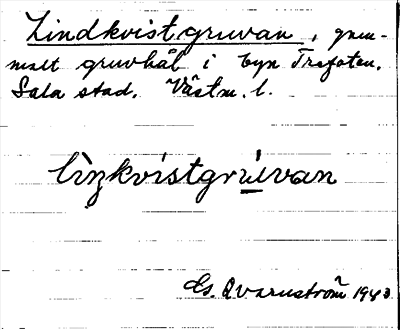 Lindkvistgruvan, gam-
malt gruvhål i byn Trefoten.
Sala stad. Västm. l.
lìŋkvistgrúvan
Es. Qvarnström 1943